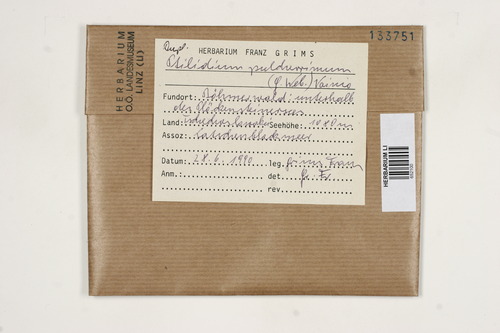 133751
HERBARIUM
O.Ö. LANDESMUSEUM
LINZ (LI)
Dupl. HERBARIUM FRANZ GRIMS
Ptilidium pulcherrimum
(G. Web.) Vainio
Fundort: Böhmerwald: unterhalb
des
Land: Seehöhe:
Assoz:
Datum: 28.6.1990 leg. Grims Franz
Anm.: det Gr. Fr.
rev.
HERBARIUM LI